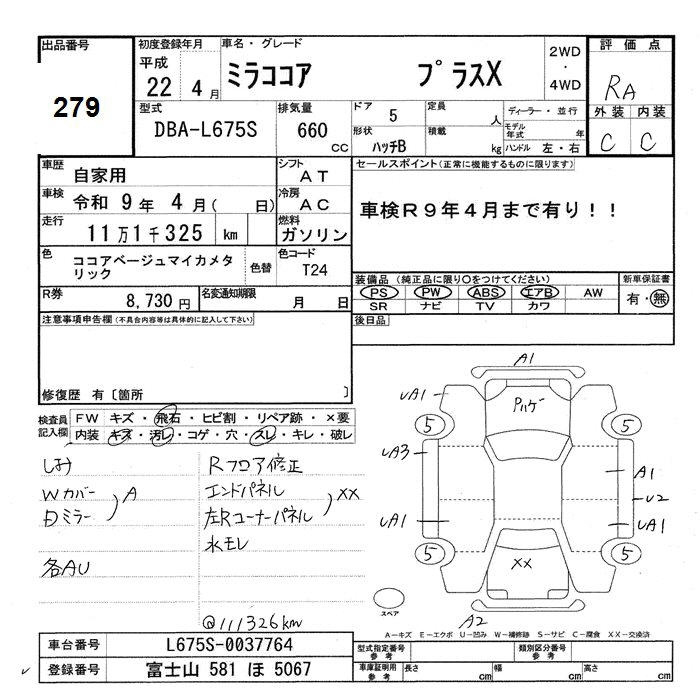 出品番号
279
初度登録年月
平成
22 4 月
車名・グレード
ミラココア プラスX
2WD
・
4WD
評価点
RA
外装 内装
C C
型式
DBA-L675S
排気量
660 CC
ドア 5
形状 ハッチB
定員 人
積載 kg
ディーラー・並行
モデル年式 年
ハンドル 左・右
車歴 自家用
シフト AT
車検 令和 9 年 4 月( 日)
冷房 AC
走行 11万1千325 km
燃料 ガソリン
色 ココアベージュマイカメタ
リック
色替
色コード T24
R券 8,730 円
名変通知期限 月 日
セールスポイント(正常に機能するものに限ります)
車検R9年4月まで有り!!
装備品 (純正品に限り○をつけてください)
PS PW ABS エアB AW
SR ナビ TV カワ
新車保証書
有・無
後日品
注意事項申告欄(不具合内容等は具体的に記入して下さい)
修復歴 有〔箇所 〕
検査員
記入欄
FW キズ・飛石・ヒビ割・リペア跡・×要
内装 キズ・汚レ・コゲ・穴・スレ・キレ・破レ
しみ
Wカバー
ミラー
A
各AU
Rフロア修正
エンドパネル
左Rコーナーパネル
XX
水モレ
@111326km
A1
UA1
Pハゲ
5
5
UA3
A1
U2
UA1
UA1
5
5
XX
スペア
A2
A-キズ E-エクボ U-凹み W-補修跡 S-サビ C-腐食 XX-交換済
車台番号 L675S-0037764
登録番号 富士山 581 ほ 5067
型式指定番号
参考
類別区分番号
参考
車庫証明用
参考
長さ cm
幅 cm
高さ cm